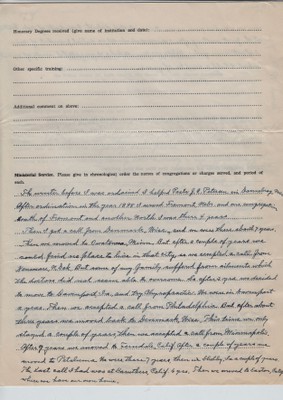 Honorary Degrees received (give name of institution and date):
Other specific training:
Additional comment on above:
Ministerial Service. Please give in chronological order the names of congregations or charges served, and period of
each.
The winter before I was ordained I helped Pastor J.A. Peterson in
After ordination in the year 1898 I served Fremont Nebr. and one congrega
South of Fremont and another North I was there 2 years
Then I got a call from Denmark, Wisc. and we were there about 7 years.
Then we moved to Canton, Minn. But after a couple of years we
could find no place to live in that city, so we accepted a call from
Kennard, Nebr. But some of my family suffered from ailments which
the doctors did not seem able to overcome. So after 2 yrs. we decided
to move to Davenport, Ia. and try Chiropractic. We were in Davenport
2 years. Then we accepted a call from Philadelphia. But after about
three years we moved back to Denmark, Wisc. This time we only
stayed a couple of years, then we accepted a call from Minneapolis.
After 7 years we moved to Ferndale, Calif. After a couple of years we
moved to Petaluma. We were there 7 years, then in Shelby, Ia. a couple of years
The last call I had was at Easton, Calif. 6 yrs. Then we moved to
where we have our own home.